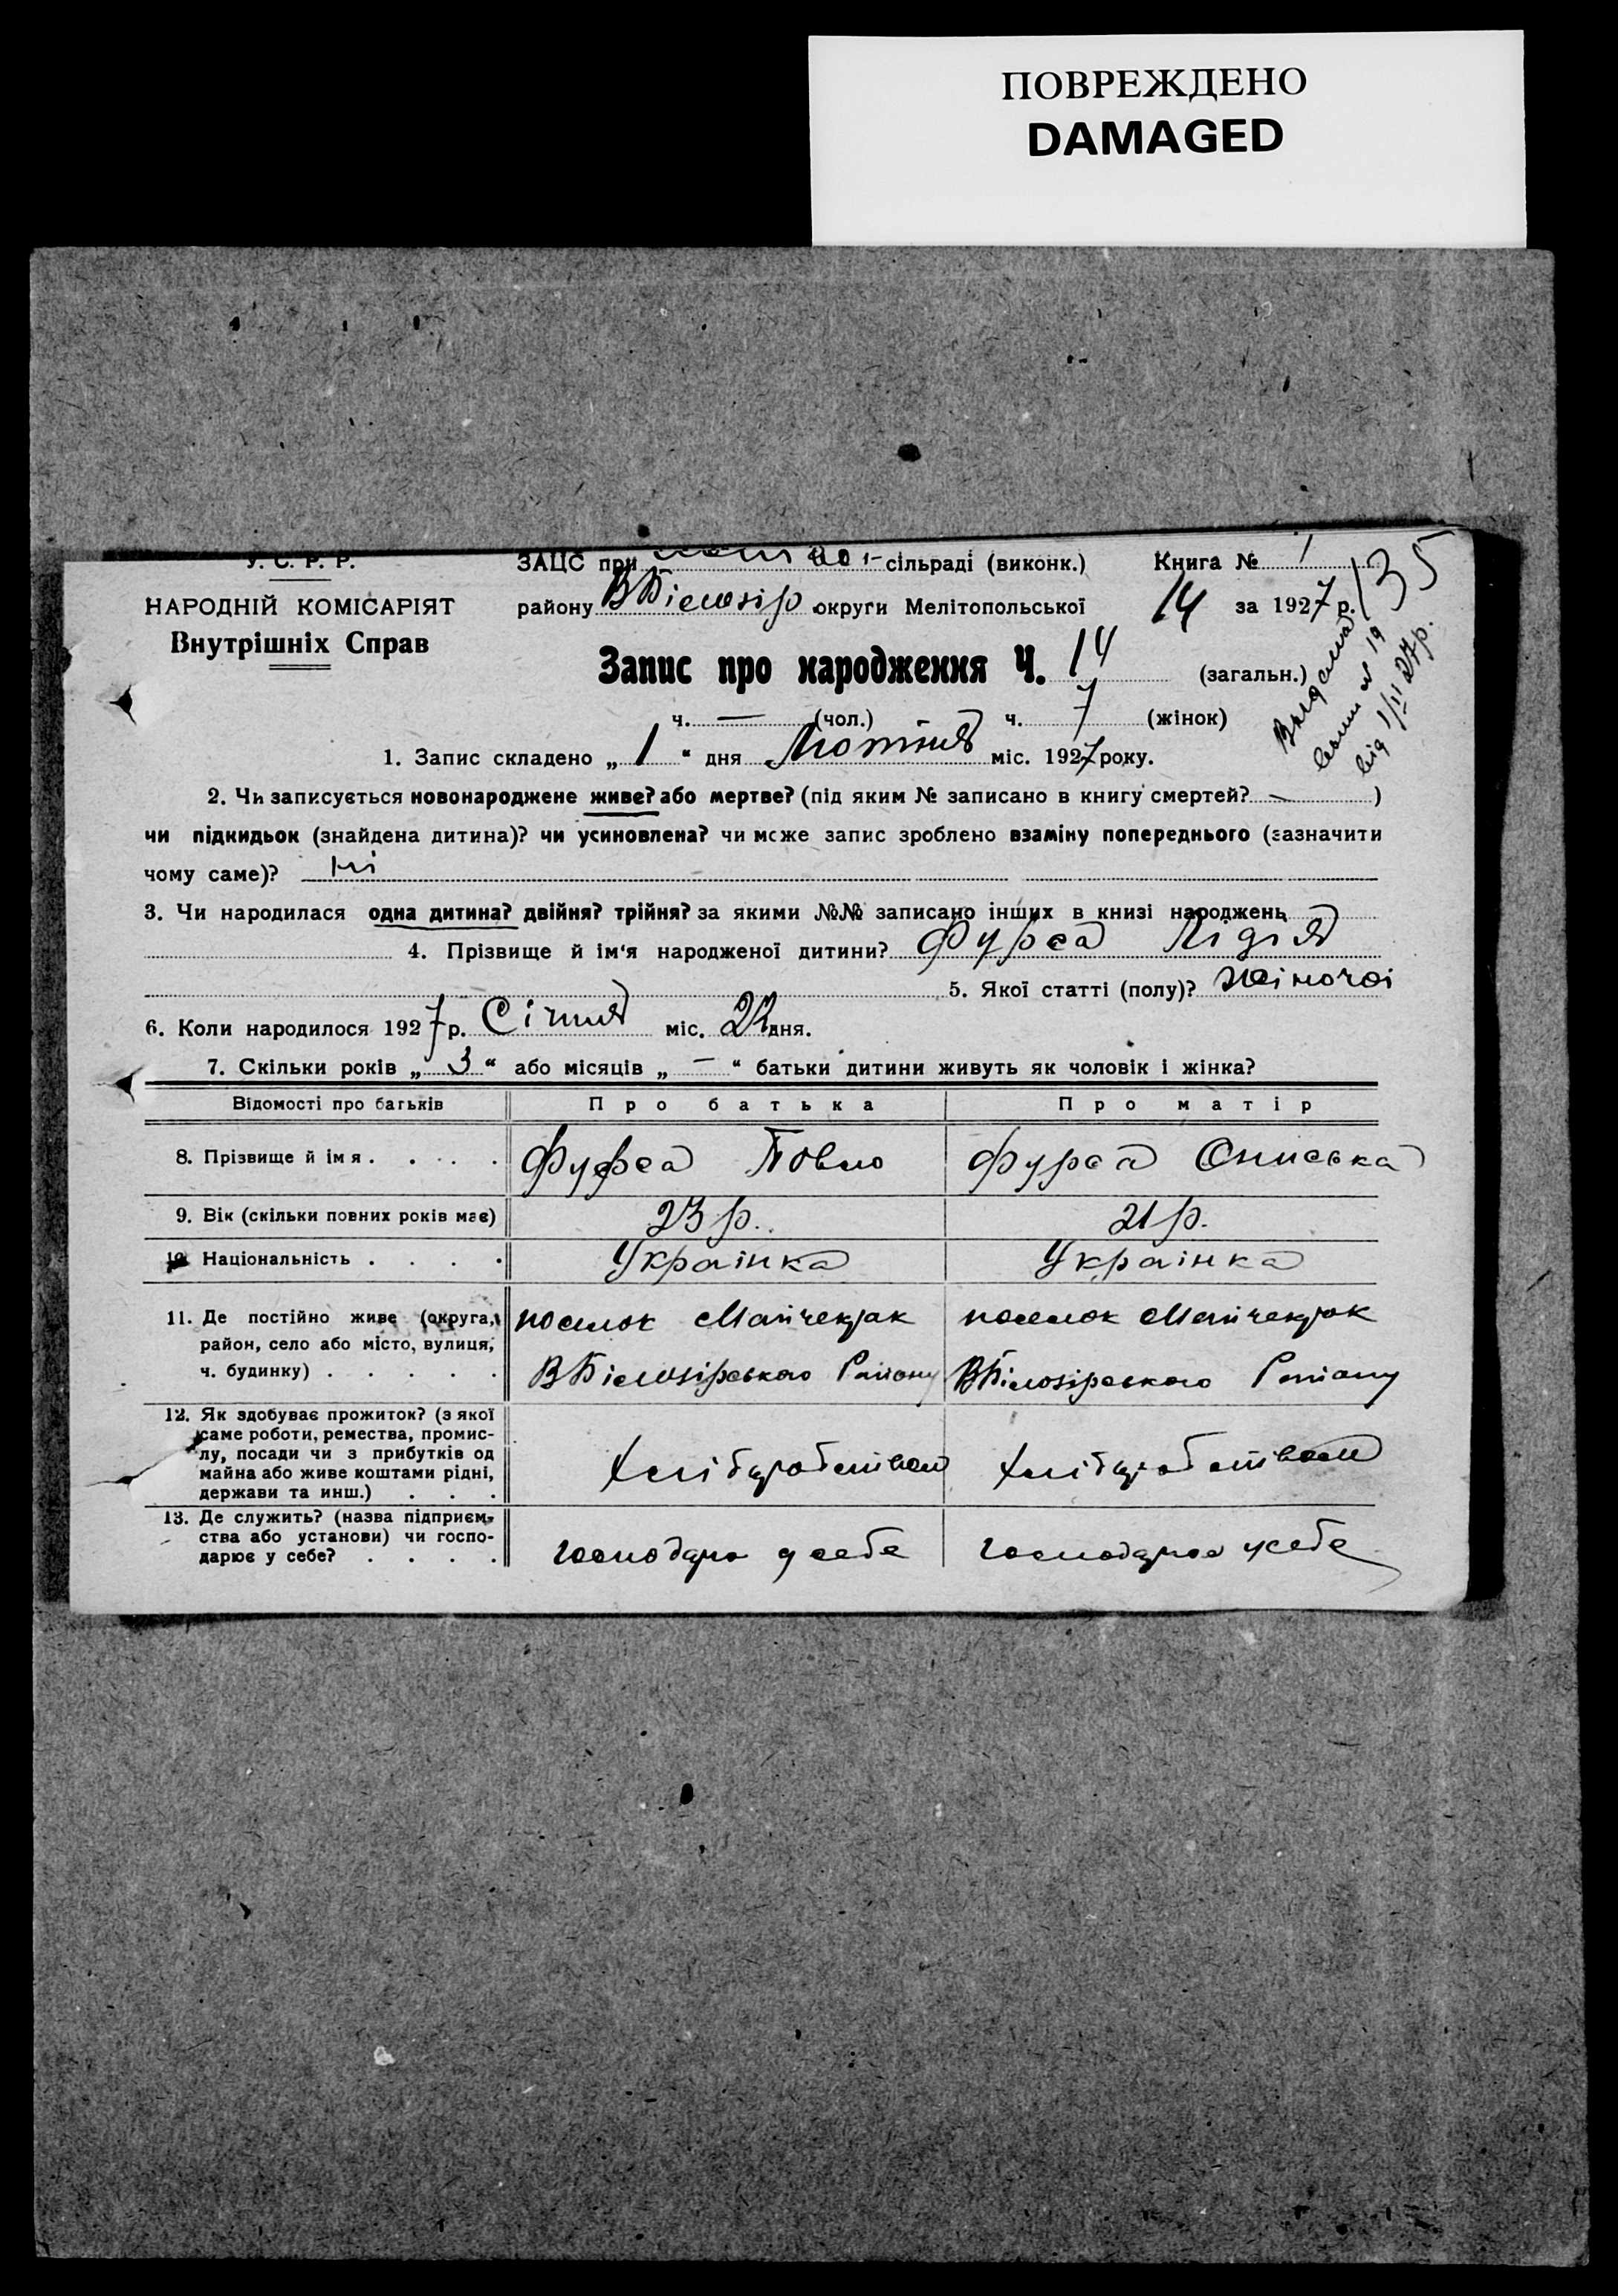 ПОВРЕЖДЕНО
DAMAGED
У. С. Р. Р.
НАРОДНІЙ КОМІСАРІЯТ
Внутрішніх Справ
ЗАЦС при сільраді (виконк.) Книга № 1
району ВБілозір округи Мелітопольської 14 за 1927 р. 135
Видана
від 1/II 27р.
Запис про народження Ч. 14 (загальн.)
ч. — (чол.) ч. 7 (жінок)
1. Запис складено „ 1 “ дня Лютня міс. 1927 року.
2. Чи записується новонароджене живе? або мертве? (під яким № записано в книгу смертей? — )
чи підкидьок (знайдена дитина)? чи усиновлена? чи може запис зроблено взаміну попереднього (зазначити
чому саме)? ні
3. Чи народилася одна дитина? двійня? трійня? за якими №№ записано інших в книзі народжень
4. Прізвище й ім'я народженої дитини? Фурса Лідія
5. Якої статті (полу)? жіночоі
6. Коли народилося 1927 р. Січня міс. 22 дня.
7. Скільки років „ 3 “ або місяців „ — “ батьки дитини живуть як чоловік і жінка?
Відомості про батьків Про батька Про матір
8. Прізвище й імя . . . . Фурса Повло Фурса Ониська
9. Вік (скільки повних років має) 23 р. 21 р.
10. Національність . . . . Украінка Украінка
11. Де постійно живе (округа, посьолок Майчекрак посьолок Майчекрак
район, село або місто, вулиця,
ч. будинку) . . . . . ВБілозірського Району ВБілозірського Району
12. Як здобуває прожиток? (з якої
саме роботи, ремества, промис-
лу, посади чи з прибутків од
майна або живе коштами рідні, Хлібуробством Хлібуробством
держави та инш.) . . .
13. Де служить? (назва підприєм-
ства або установи) чи госпо-
дарює у себе? . . . . господарю у себе господарює усебе